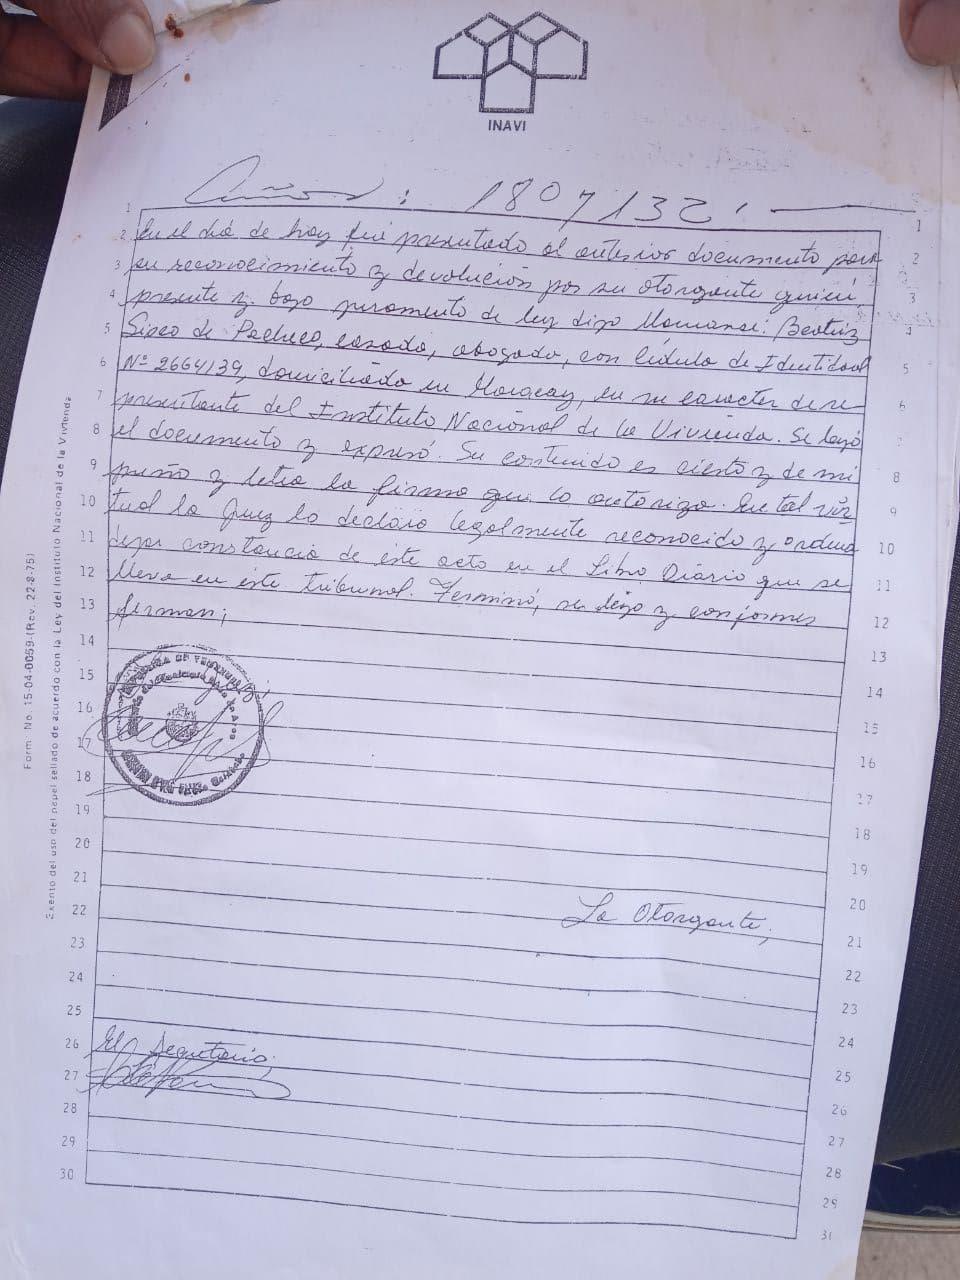 INAVI
Años: 180 y 132.
En el día de hoy fué presentado el anterior documento para
su reconocimiento y devolución por su otorgante quien
presente y bajo juramento de ley dijo llamarse: Beatriz
Sisco de Pacheco, casada, abogado, con Cédula de Identidad
Nº 2664139, domiciliada en Maracay, en su caracter de re
presentante del Instituto Nacional de la Vivienda. Se leyó
el documento y expuso. Su contenido es cierto y de mi
puño y letra la firma que lo autoriza. En tal vir
tud la Juez lo declara legalmente reconocido y ordena
dejar constancia de este acto en el Libro Diario que se
lleva en este tribunal. Terminó, se leyo y conformes
firman;
REPUBLICA DE VENEZUELA
La Otorgante,
El Secretario,
Form. No. 15-04-0059-(Rev. 22-8-75)
Exento del uso del papel sellado de acuerdo con la Ley del Instituto Nacional de la Vivienda
1
2
3
4
5
6
7
8
9
10
11
12
13
14
15
16
17
18
19
20
21
22
23
24
25
26
27
28
29
30
1
2
3
4
5
6
7
8
9
10
11
12
13
14
15
16
17
18
19
20
21
22
23
24
25
26
27
28
29
31